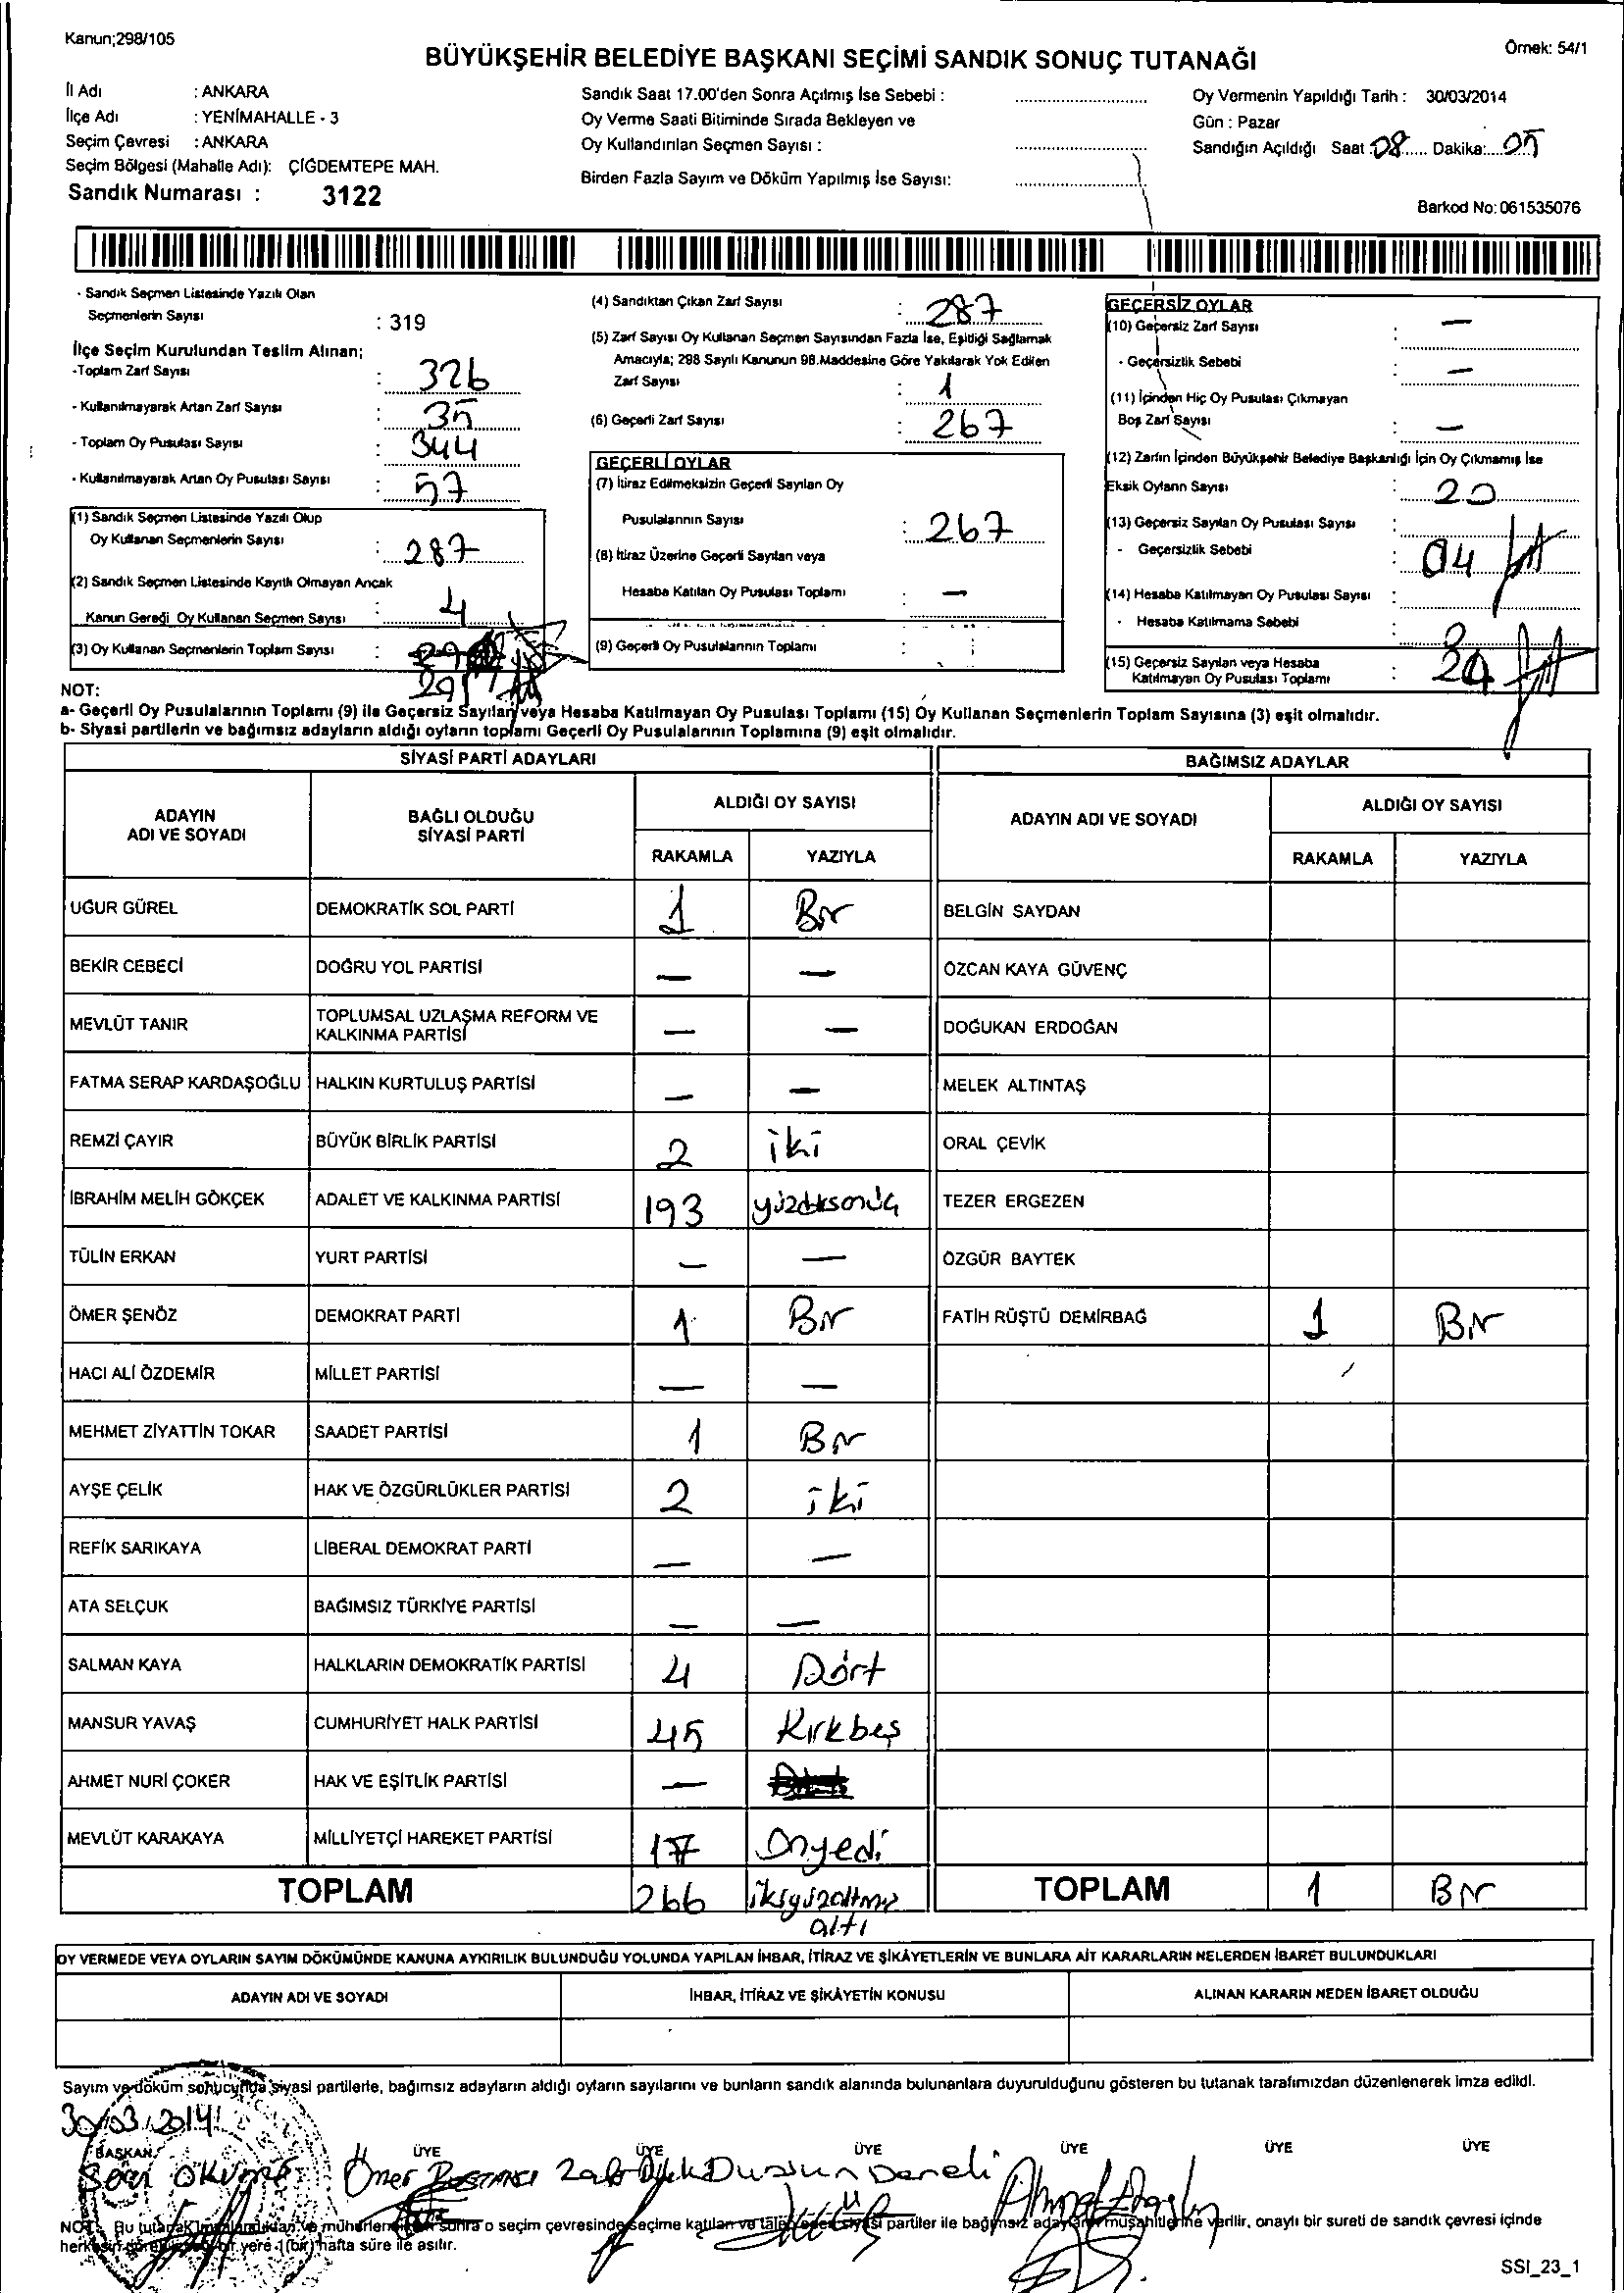 Kanun;298/105
Örnek: 54/1
BÜYÜKŞEHİR BELEDİYE BAŞKANI SEÇİMİ SANDIK SONUÇ TUTANAĞI
İl Adı : ANKARA
İlçe Adı : YENİMAHALLE - 3
Seçim Çevresi : ANKARA
Seçim Bölgesi (Mahalle Adı): ÇİĞDEMTEPE MAH.
Sandık Numarası : 3122
Sandık Saat 17.00'den Sonra Açılmış İse Sebebi :
Oy Verme Saati Bitiminde Sırada Bekleyen ve
Oy Kullandırılan Seçmen Sayısı :
Birden Fazla Sayım ve Döküm Yapılmış İse Sayısı:
Oy Vermenin Yapıldığı Tarih : 30/03/2014
Gün : Pazar
Sandığın Açıldığı Saat : 08 Dakika: 05
Barkod No: 061535076
- Sandık Seçmen Listesinde Yazılı Olan
Seçmenlerin Sayısı : 319
İlçe Seçim Kurulundan Teslim Alınan;
-Toplam Zarf Sayısı : 326
- Kullanılmayarak Artan Zarf Sayısı : 35
- Toplam Oy Pusulası Sayısı : 344
- Kullanılmayarak Artan Oy Pusulası Sayısı : 57
(1) Sandık Seçmen Listesinde Yazılı Olup
Oy Kullanan Seçmenlerin Sayısı : 287
(2) Sandık Seçmen Listesinde Kayıtlı Olmayan Ancak
Kanun Gereği Oy Kullanan Seçmen Sayısı : 4
(3) Oy Kullanan Seçmenlerin Toplam Sayısı : 291
(4) Sandıktan Çıkan Zarf Sayısı : 287
(5) Zarf Sayısı Oy Kullanan Seçmen Sayısından Fazla İse, Eşitliği Sağlamak
Amacıyla; 298 Sayılı Kanunun 98.Maddesine Göre Yakılarak Yok Edilen
Zarf Sayısı : 1
(6) Geçerli Zarf Sayısı : 267
GEÇERLİ OYLAR
(7) İtiraz Edilmeksizin Geçerli Sayılan Oy
Pusulalarının Sayısı : 267
(8) İtiraz Üzerine Geçerli Sayılan veya
Hesaba Katılan Oy Pusulası Toplamı : —
(9) Geçerli Oy Pusulalarının Toplamı :
GEÇERSİZ OYLAR
(10) Geçersiz Zarf Sayısı : —
- Geçersizlik Sebebi : —
(11) İçinden Hiç Oy Pusulası Çıkmayan
Boş Zarf Sayısı : —
(12) Zarfın İçinden Büyükşehir Belediye Başkanlığı İçin Oy Çıkmamış İse
Eksik Oyların Sayısı : 20
(13) Geçersiz Sayılan Oy Pusulası Sayısı :
- Geçersizlik Sebebi : 04
(14) Hesaba Katılmayan Oy Pusulası Sayısı :
- Hesaba Katılmama Sebebi :
(15) Geçersiz Sayılan veya Hesaba
Katılmayan Oy Pusulası Toplamı :
NOT:
a- Geçerli Oy Pusulalarının Toplamı (9) ile Geçersiz Sayılan veya Hesaba Katılmayan Oy Pusulası Toplamı (15) Oy Kullanan Seçmenlerin Toplam Sayısına (3) eşit olmalıdır.
b- Siyasi partilerin ve bağımsız adayların aldığı oyların toplamı Geçerli Oy Pusulalarının Toplamına (9) eşit olmalıdır.
SİYASİ PARTİ ADAYLARI BAĞIMSIZ ADAYLAR
ADAYIN ADI VE SOYADI BAĞLI OLDUĞU SİYASİ PARTİ ALDIĞI OY SAYISI ADAYIN ADI VE SOYADI ALDIĞI OY SAYISI
RAKAMLA YAZIYLA RAKAMLA YAZIYLA
UĞUR GÜREL DEMOKRATİK SOL PARTİ 1 Bir BELGİN SAYDAN
BEKİR CEBECİ DOĞRU YOL PARTİSİ — — ÖZCAN KAYA GÜVENÇ
MEVLÜT TANIR TOPLUMSAL UZLAŞMA REFORM VE KALKINMA PARTİSİ — — DOĞUKAN ERDOĞAN
FATMA SERAP KARDAŞOĞLU HALKIN KURTULUŞ PARTİSİ — — MELEK ALTINTAŞ
REMZİ ÇAYIR BÜYÜK BİRLİK PARTİSİ 2 iki ORAL ÇEVİK
İBRAHİM MELİH GÖKÇEK ADALET VE KALKINMA PARTİSİ 193 TEZER ERGEZEN
TÜLİN ERKAN YURT PARTİSİ — — ÖZGÜR BAYTEK
ÖMER ŞENÖZ DEMOKRAT PARTİ 1 Bir FATİH RÜŞTÜ DEMİRBAĞ 1 Bir
HACI ALİ ÖZDEMİR MİLLET PARTİSİ — —
MEHMET ZİYATTİN TOKAR SAADET PARTİSİ 1 Bir
AYŞE ÇELİK HAK VE ÖZGÜRLÜKLER PARTİSİ 2 iki
REFİK SARIKAYA LİBERAL DEMOKRAT PARTİ — —
ATA SELÇUK BAĞIMSIZ TÜRKİYE PARTİSİ — —
SALMAN KAYA HALKLARIN DEMOKRATİK PARTİSİ 4 Dört
MANSUR YAVAŞ CUMHURİYET HALK PARTİSİ 45 Kırkbeş
AHMET NURİ ÇOKER HAK VE EŞİTLİK PARTİSİ —
MEVLÜT KARAKAYA MİLLİYETÇİ HAREKET PARTİSİ 17 Onyedi
TOPLAM 266 ikiyüzaltmış altı TOPLAM 1 Bir
OY VERMEDE VEYA OYLARIN SAYIM DÖKÜMÜNDE KANUNA AYKIRILIK BULUNDUĞU YOLUNDA YAPILAN İHBAR, İTİRAZ VE ŞİKÂYETLERİN VE BUNLARA AİT KARARLARIN NELERDEN İBARET BULUNDUKLARI
ADAYIN ADI VE SOYADI İHBAR, İTİRAZ VE ŞİKÂYETİN KONUSU ALINAN KARARIN NEDEN İBARET OLDUĞU
Sayım ve döküm sonucunda siyasi partilerle, bağımsız adayların aldığı oyların sayılarını ve bunların sandık alanında bulunanlara duyurulduğunu gösteren bu tutanak tarafımızdan düzenlenerek imza edildi.
30/03/2014
BAŞKAN ÜYE ÜYE ÜYE ÜYE ÜYE ÜYE
Ömer Dursun
NOT: Bu tutanak sonra o seçim çevresinde seçime katılan ve siyasi partiler ile bağımsız müşahitlerine verilir, onaylı bir sureti de sandık çevresi içinde
bir yere 1(bir) hafta süre ile asılır.
SSI_23_1